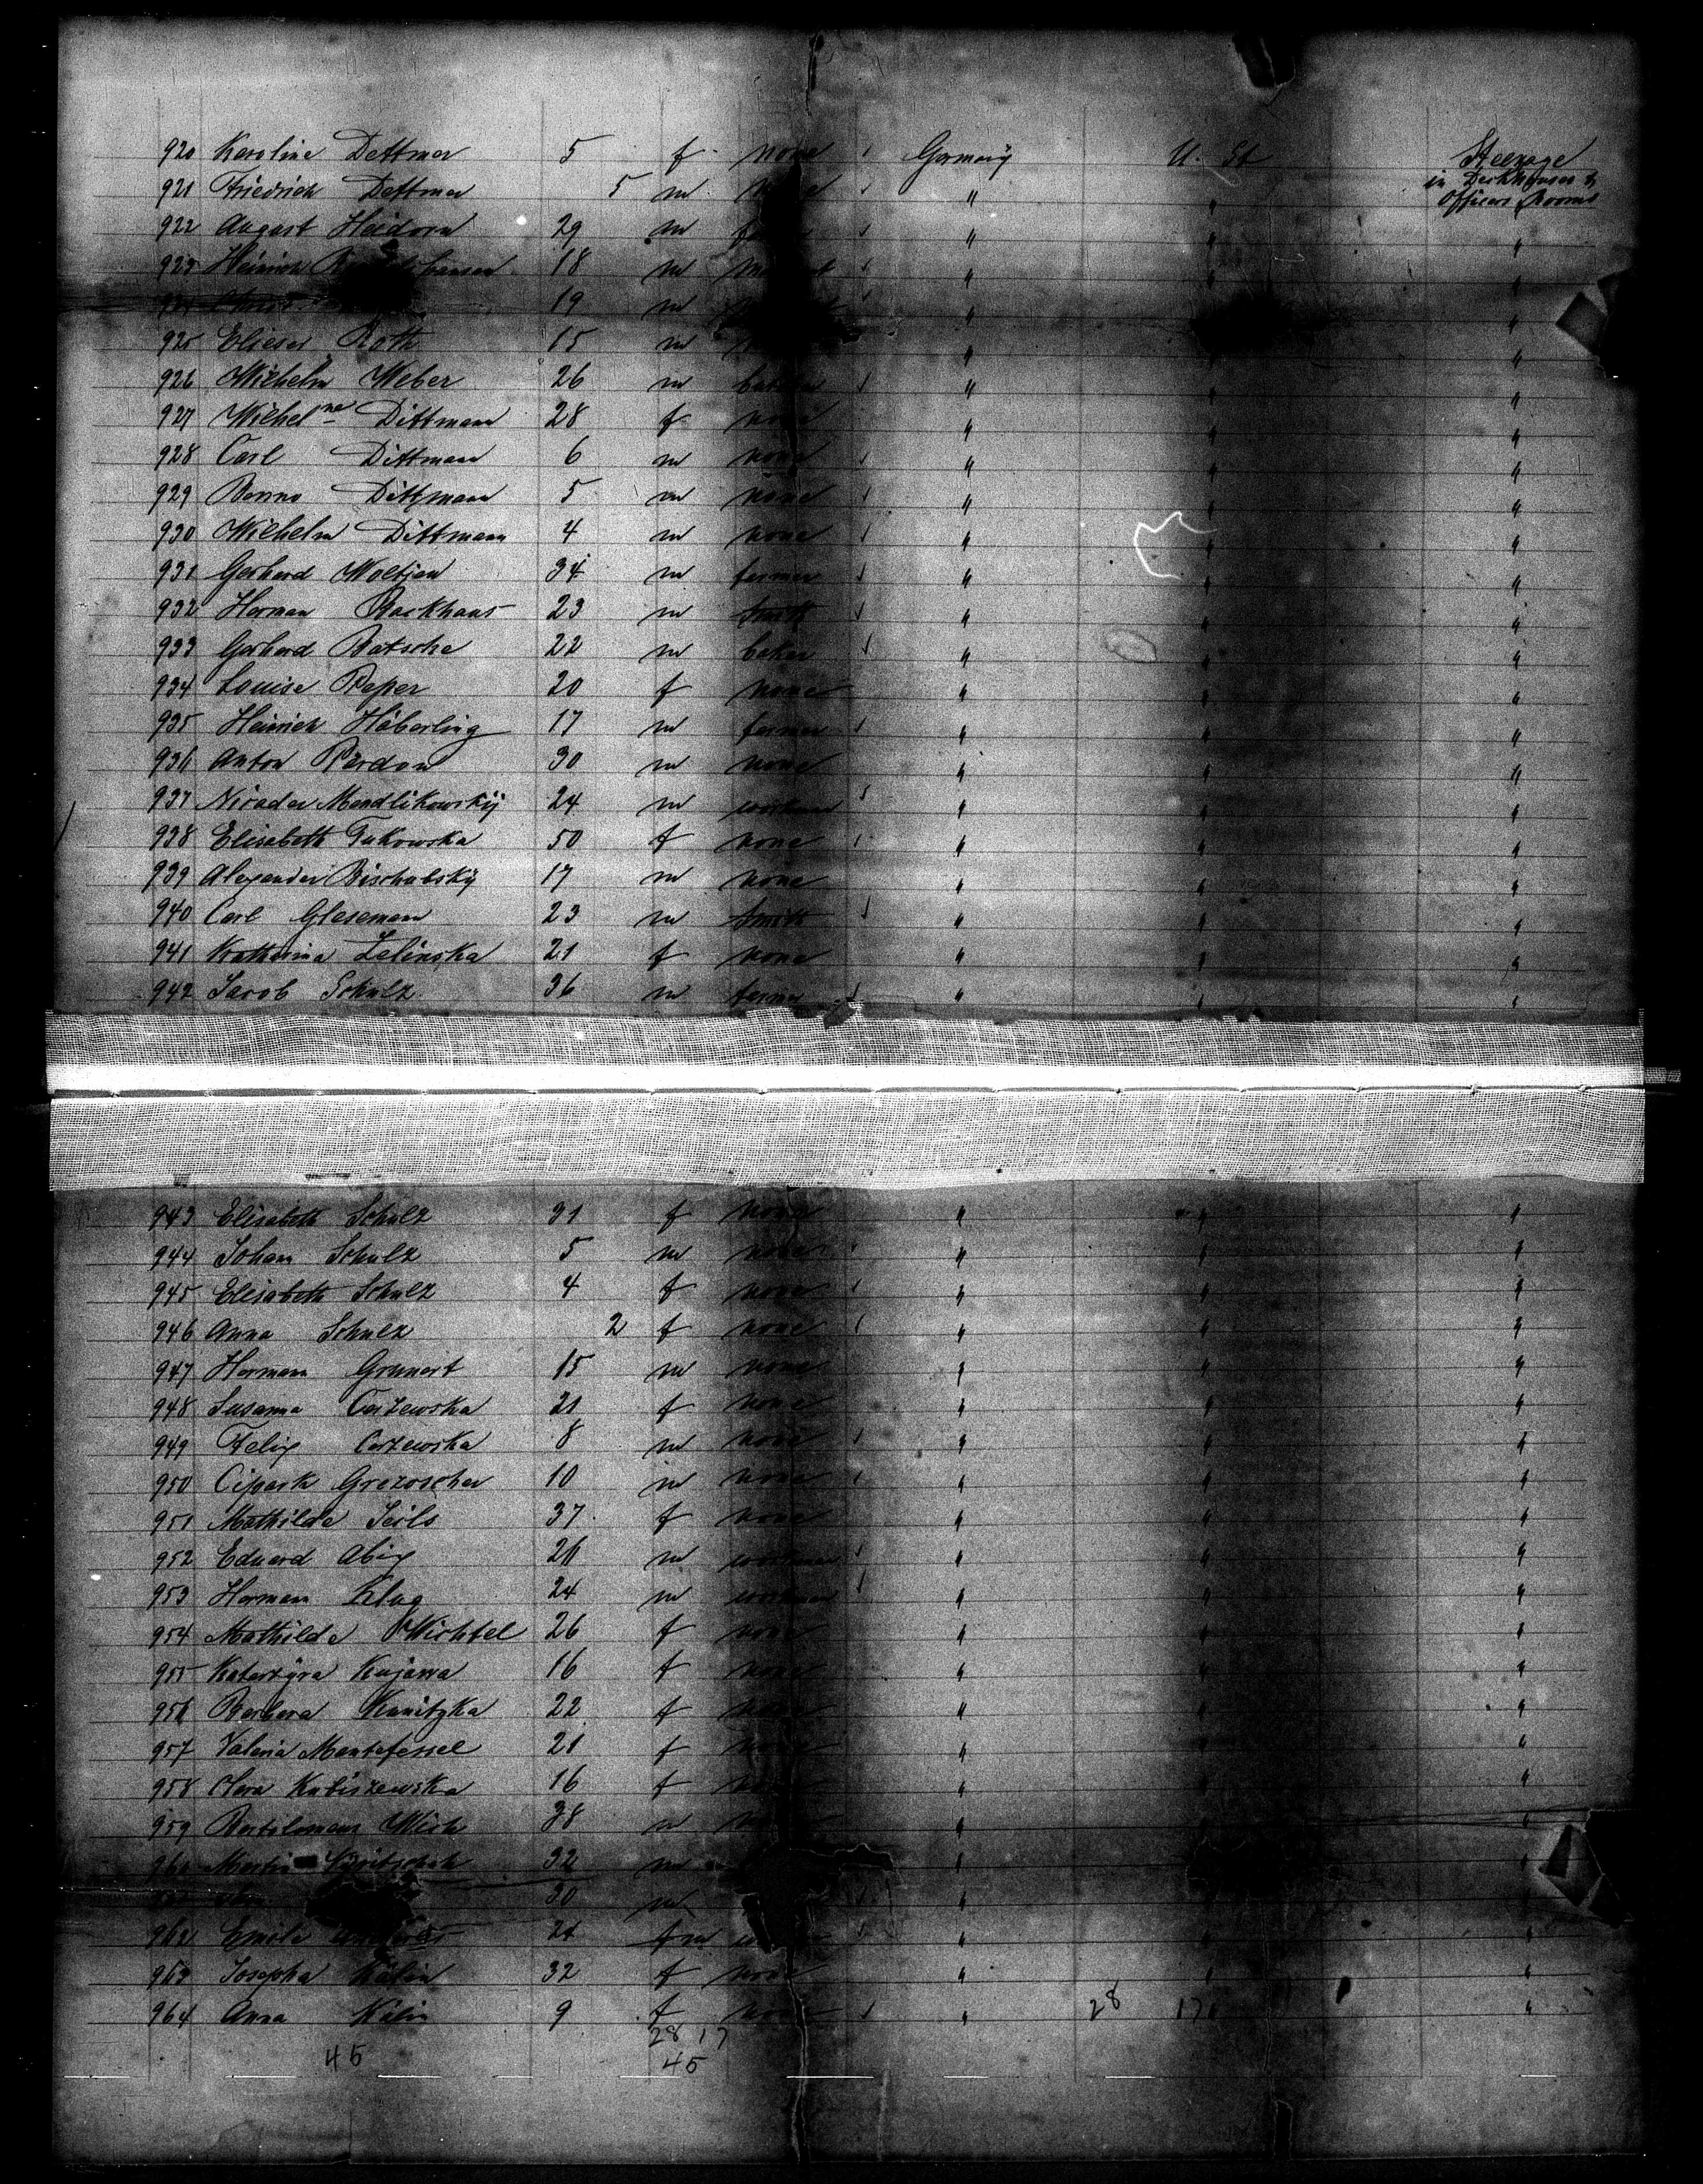 920 Karoline Dettmer 5 f none Germany U. St Steerage
in Deckhouses &
921 Friedrich Dettmer 5 m " " Officers Rooms
922 August Heidorn 29 m " " "
923 Heinrich 18 m " " "
19 m " " "
925 Elieser Roth 15 m " " "
926 Wilhelm Weber 26 m " " "
927 Wilhelne Dittmann 28 f none " " "
928 Carl Dittmann 6 m none " " "
929 Benno Dittmann 5 m none " " "
930 Wilhelm Dittmann 4 m none " " "
931 Gerhard Woltjen 34 m farmer " " "
932 Herman Backhaus 23 m Smith " " "
933 Gerhard Batsche 22 m baker " " "
934 Louise Peper 20 f none " " "
935 Heinrich Häberling 17 m farmer " " "
936 Anton Pardon 30 m none " " "
937 Mendlikowskÿ 24 m workman " " "
938 Elisabeth Tukowska 50 f none " " "
939 Alexander Bischubskÿ 17 m none " " "
940 Carl Glesemann 23 m Smith " " "
941 Katharina Zelinska 21 f none " " "
942 Jacob Schulz 36 m farmer " " "
943 Elisabeth Schulz 31 f none " " "
944 Johann Schulz 5 m none " " "
945 Elisabeth Schulz 4 f none " " "
946 Anna Schulz 2 f none " " "
947 Hermann Grunert 15 m none " " "
948 Susanna Carzewska 21 f none " " "
949 Felix Carzewska 8 m none " " "
950 Grezoscher 10 m none " " "
951 Mathilde Seils 37 f none " " "
952 Eduard Abix 26 m workman " " "
953 Hermann Klug 24 m workman " " "
954 Mathilde Wichtel 26 f none " " "
955 Katarzÿna Kujawa 16 f none " " "
956 Barbara Kanitzka 22 f none " " "
957 Valeria Mantefessel 21 f none " " "
958 Kubiszewska 16 f none " " "
959 Bartolomeus Wich 38 m " " "
960 Martin 32 m " " "
30 m " " "
962 Emile 24 m " " "
963 Josepha Kälin 32 f none " " "
964 Anna Kälin 9 f none " 28 17 "
28 17
45 45